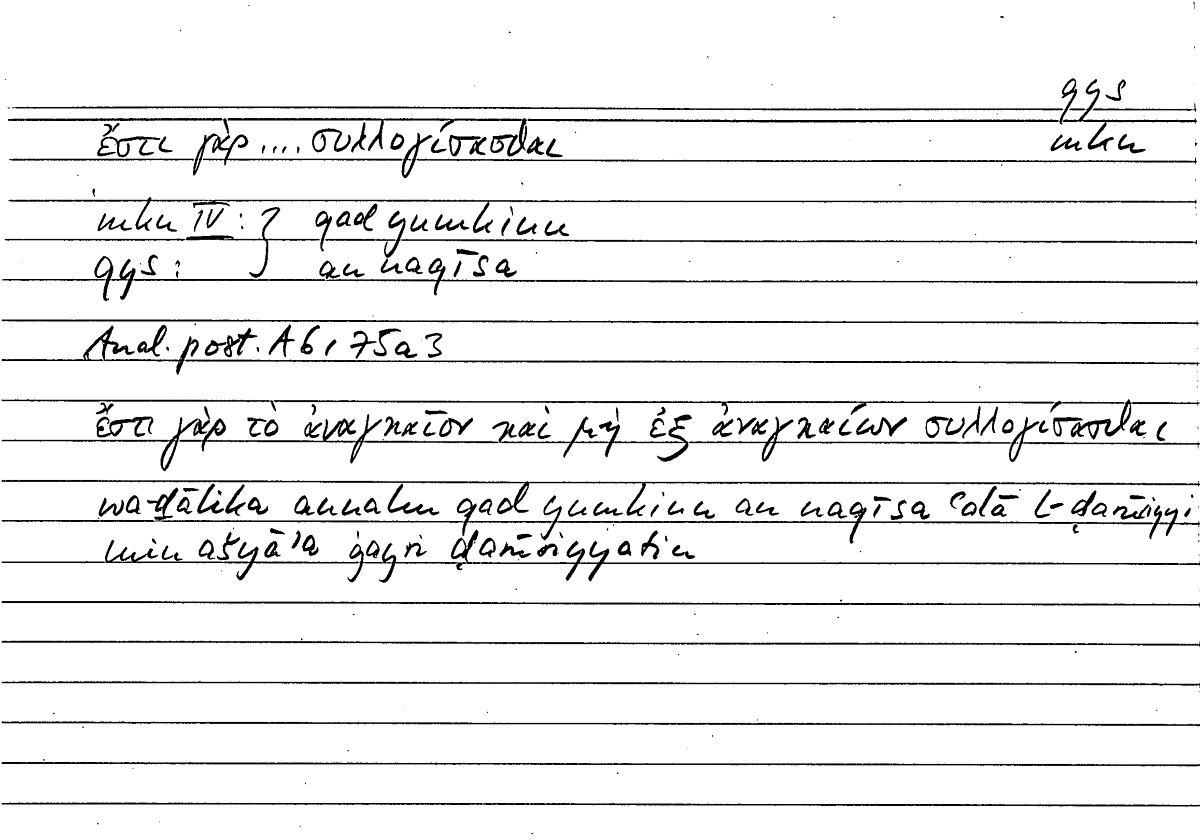 qys
ἔστι γὰρ .... συλλογίσασθαι
mkn
mkn IV : } qad yumkinu
qys : } an naqīsa
Anal. post. A6, 75a3
ἔστι γὰρ τὸ ἀναγκαῖον καὶ μὴ ἐξ ἀναγκαίων συλλογίσασθαι
wa-ḏālika annahu qad yumkinu an naqīsa ʿalā l-ḍarūriyyi
min ašyāʾa ġayri ḍarūriyyatin